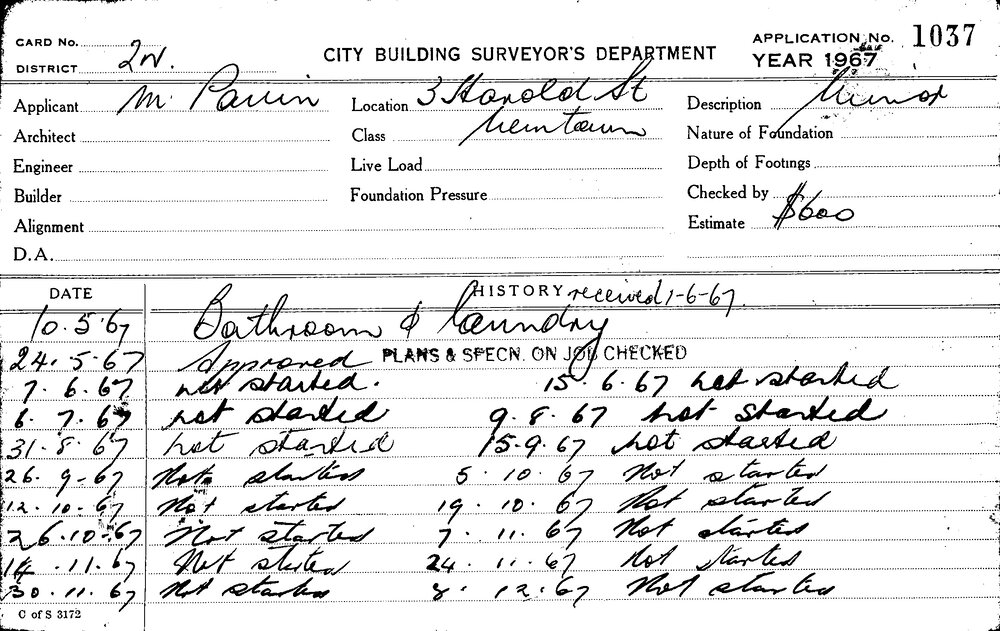 CARD No.
DISTRICT 2W.
CITY BUILDING SURVEYOR'S DEPARTMENT
APPLICATION No. 1037
YEAR 1967
Applicant M. Parrin
Location 3 Harold St
Description Minor
Architect
Class Newtown
Nature of Foundation
Engineer
Live Load
Depth of Footings
Builder
Foundation Pressure
Checked by
Alignment
Estimate $600
D.A.
DATE
HISTORY received 1-6-67.
10.5.67 Bathroom & Laundry
24.5.67 Approved PLANS & SPECN. ON JOB CHECKED
7.6.67 not started. 15.6.67 not started
6.7.67 not started 9.8.67 not started
31.8.67 not started 15.9.67 not started
26.9-67 Not started 5.10.67 Not started
12.10.67 Not started 19.10.67 Not started
26.10.67 Not started 7.11.67 Not started
14.11.67 Not started 24.11.67 Not started
30.11.67 Not started 8.12.67 Not started
C of S 3172